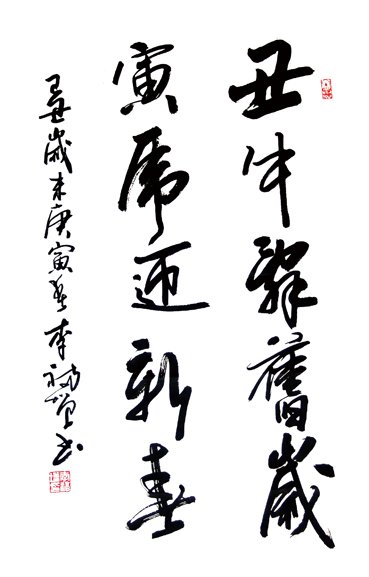 丑牛辭舊歲
寅虎迎新春
己丑歲末庚寅春李书